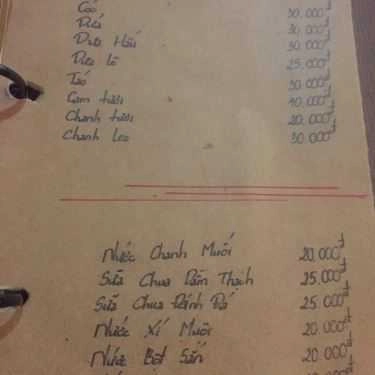 Cóc 30.000đ
Dứa 30.000đ
Dưa Hấu 30.000đ
Dưa lê 25.000đ
Táo 30.000đ
Cam tươi 40.000đ
Chanh tươi 20.000đ
Chanh leo 30.000đ
Nước Chanh Muối 20.000đ
Sữa Chua Dầm Thạch 25.000đ
Sữa Chua Đánh Đá 25.000đ
Nước Xí Muội 20.000đ
Nước Bột Sắn 20.000đ